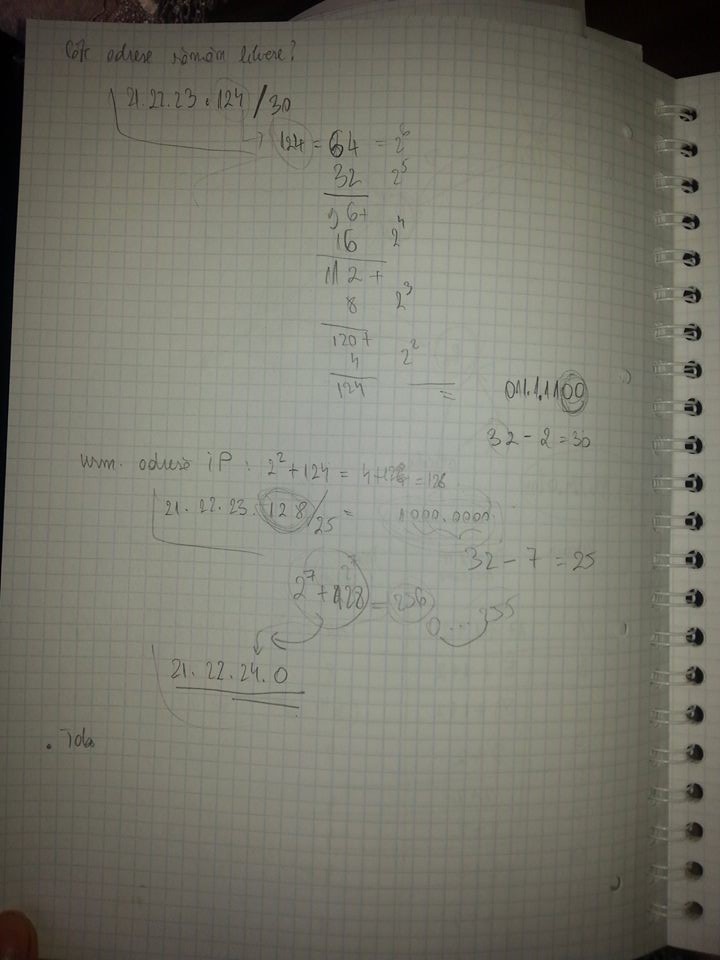 Câte adrese rămân libere?
21.22.23.124/30
124 = 64 = 2^6
32 2^5
96+
16 2^4
112+
8 2^3
120+
4 2^2
124
011.1.1100
32-2=30
urm. adresă IP: 2^2+124 = 4+124=128
21.22.23.128/25 = 1000.0000
32-7=25
2^7+128 = 256
0...255
21.22.24.0